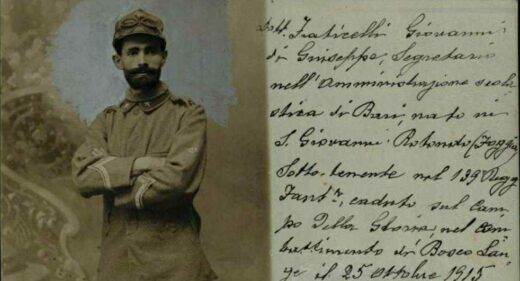 Dott. Fraticelli Giovanni
di Giuseppe, Segretario
nell'Amministrazione scola
stica di Bari, nato in
S. Giovanni Rotondo (Foggia)
Sotto-tenente nel 139 Regg
Fant.ª, caduto sul Cam-
po Della Gloria, nel com
battimento di Bosco Lan-
ge il 25 Ottobre 1915